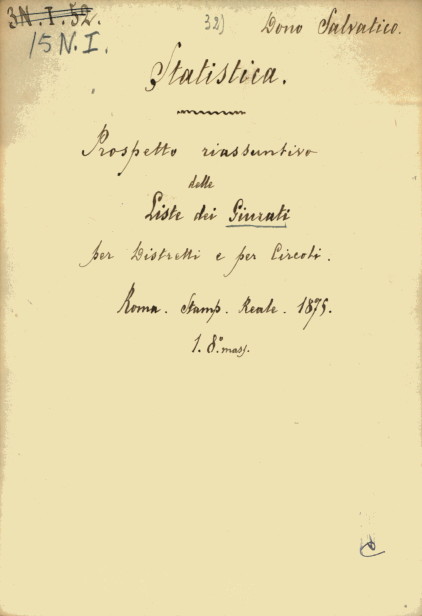 3N. I. 52.
15 N. I.
32) Dono Salvatico.
Statistica.
Prospetto riassuntivo
delle
Liste dei Giurati
per Distretti e per Circoli.
Roma. Stamp. Reale. 1875.
1. 8.° mass.